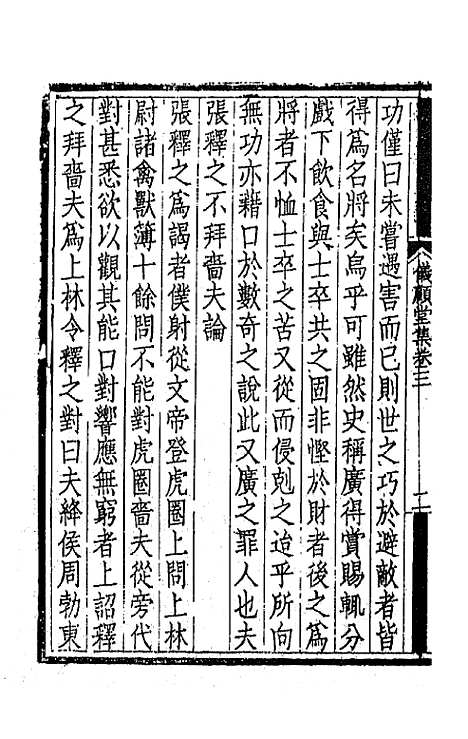 儀顧堂集卷三
功僅曰未嘗遇害而已則世之巧於避敵者皆
得爲名將矣烏乎可雖然史稱廣得賞賜輒分
戲下飲食與士卒共之固非慳於財者後之爲
將者不恤士卒之苦又從而侵剋之迨乎所向
無功亦藉口於數奇之說此又廣之罪人也夫
張釋之不拜嗇夫論
張釋之爲謁者僕射從文帝登虎圈上問上林
尉諸禽獸簿十餘問不能對虎圈嗇夫從旁代
對甚悉欲以觀其能口對響應無窮者上詔釋
之拜嗇夫爲上林令釋之對曰夫絳侯周勃東